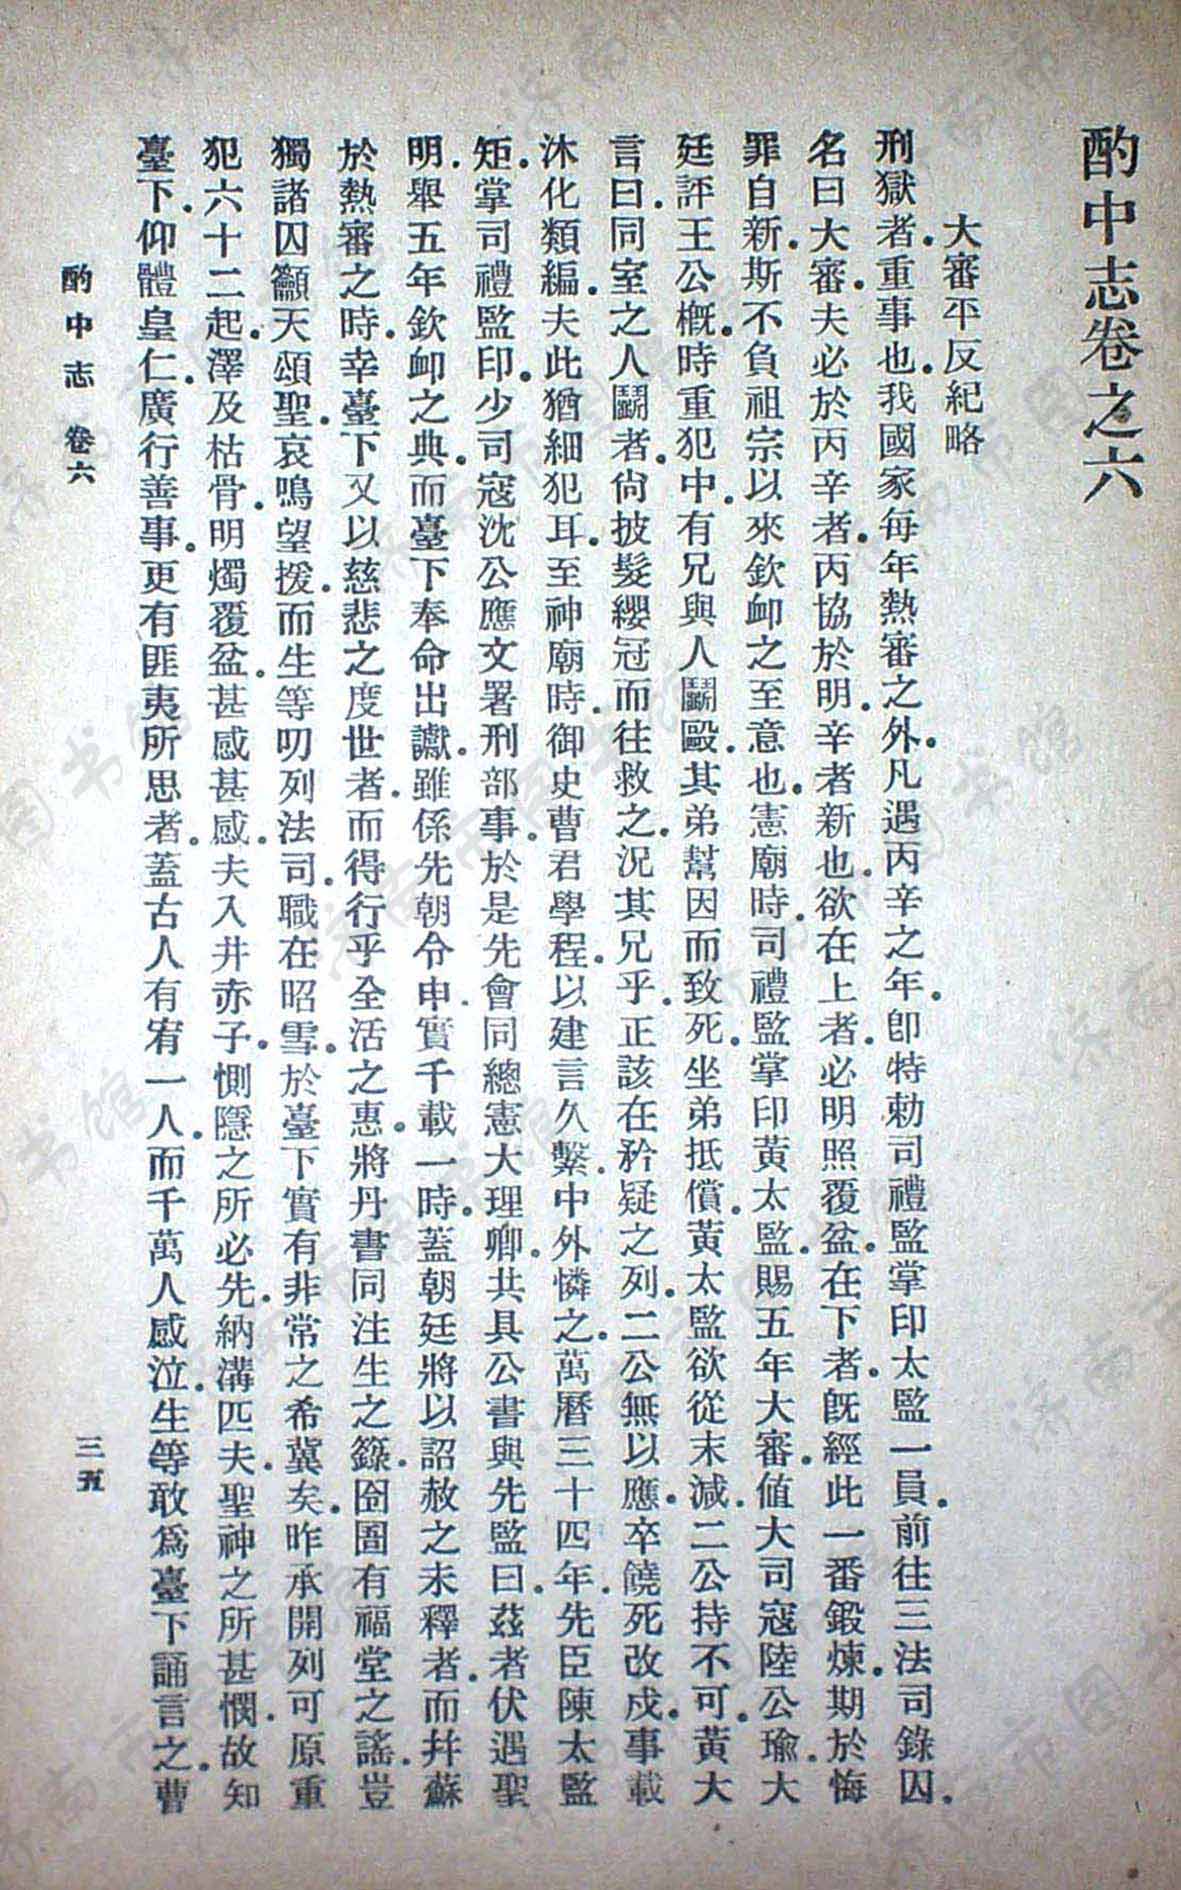 酌中志卷之六
大審平反紀略
刑獄者.重事也.我國家每年熱審之外.凡遇丙辛之年.卽特勅司禮監掌印太監一員.前往三法司錄囚.
名曰大審.夫必於丙辛者.丙協於明.辛者新也.欲在上者.必明照覆盆.在下者.旣經此一番鍛煉.期於悔
罪自新.斯不負祖宗以來欽卹之至意也.憲廟時.司禮監掌印黃太監.賜五年大審.値大司寇陸公瑜.大
廷評王公槪.時重犯中.有兄與人鬬毆.其弟幫因而致死.坐弟抵償.黃太監欲從末減.二公持不可.黃大
言曰.同室之人鬬者.尙披髮纓冠而往救之.況其兄乎.正該在矜疑之列.二公無以應.卒饒死改戍.事載
沐化類編.夫此猶細犯耳.至神廟時.御史曹君學程.以建言久繫.中外憐之.萬曆三十四年.先臣陳太監
矩.掌司禮監印.少司寇沈公應文署刑部事.於是先會同總憲大理卿.共具公書與先監曰.茲者伏遇聖
明.舉五年欽卹之典.而臺下奉命出讞.雖係先朝令申.實千載一時.蓋朝廷將以詔赦之未釋者.而幷蘇
於熱審之時.幸臺下又以慈悲之度世者.而得行乎全活之惠.將丹書同注生之籙.囹圄有福堂之謠.豈
獨諸囚籲天頌聖.哀鳴望援.而生等叨列法司.職在昭雪.於臺下實有非常之希冀矣.昨承開列可原重
犯六十二起.澤及枯骨.明燭覆盆.甚感甚感.夫入井赤子.惻隱之所必先.納溝匹夫.聖神之所甚憫.故知
臺下.仰體皇仁.廣行善事.更有匪夷所思者.蓋古人有宥一人.而千萬人感泣.生等敢爲臺下誦言之.曹
酌中志　卷六
三五
济南市图书馆